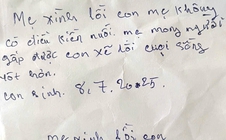 Mẹ xin lỗi con mẹ không
có điều kiện nuôi. mẹ mong người
gặp được con xẽ lo cuội sống
tốt hơn.
con sinh. 8, 7. 2025.
Mẹ xinh lỗi con